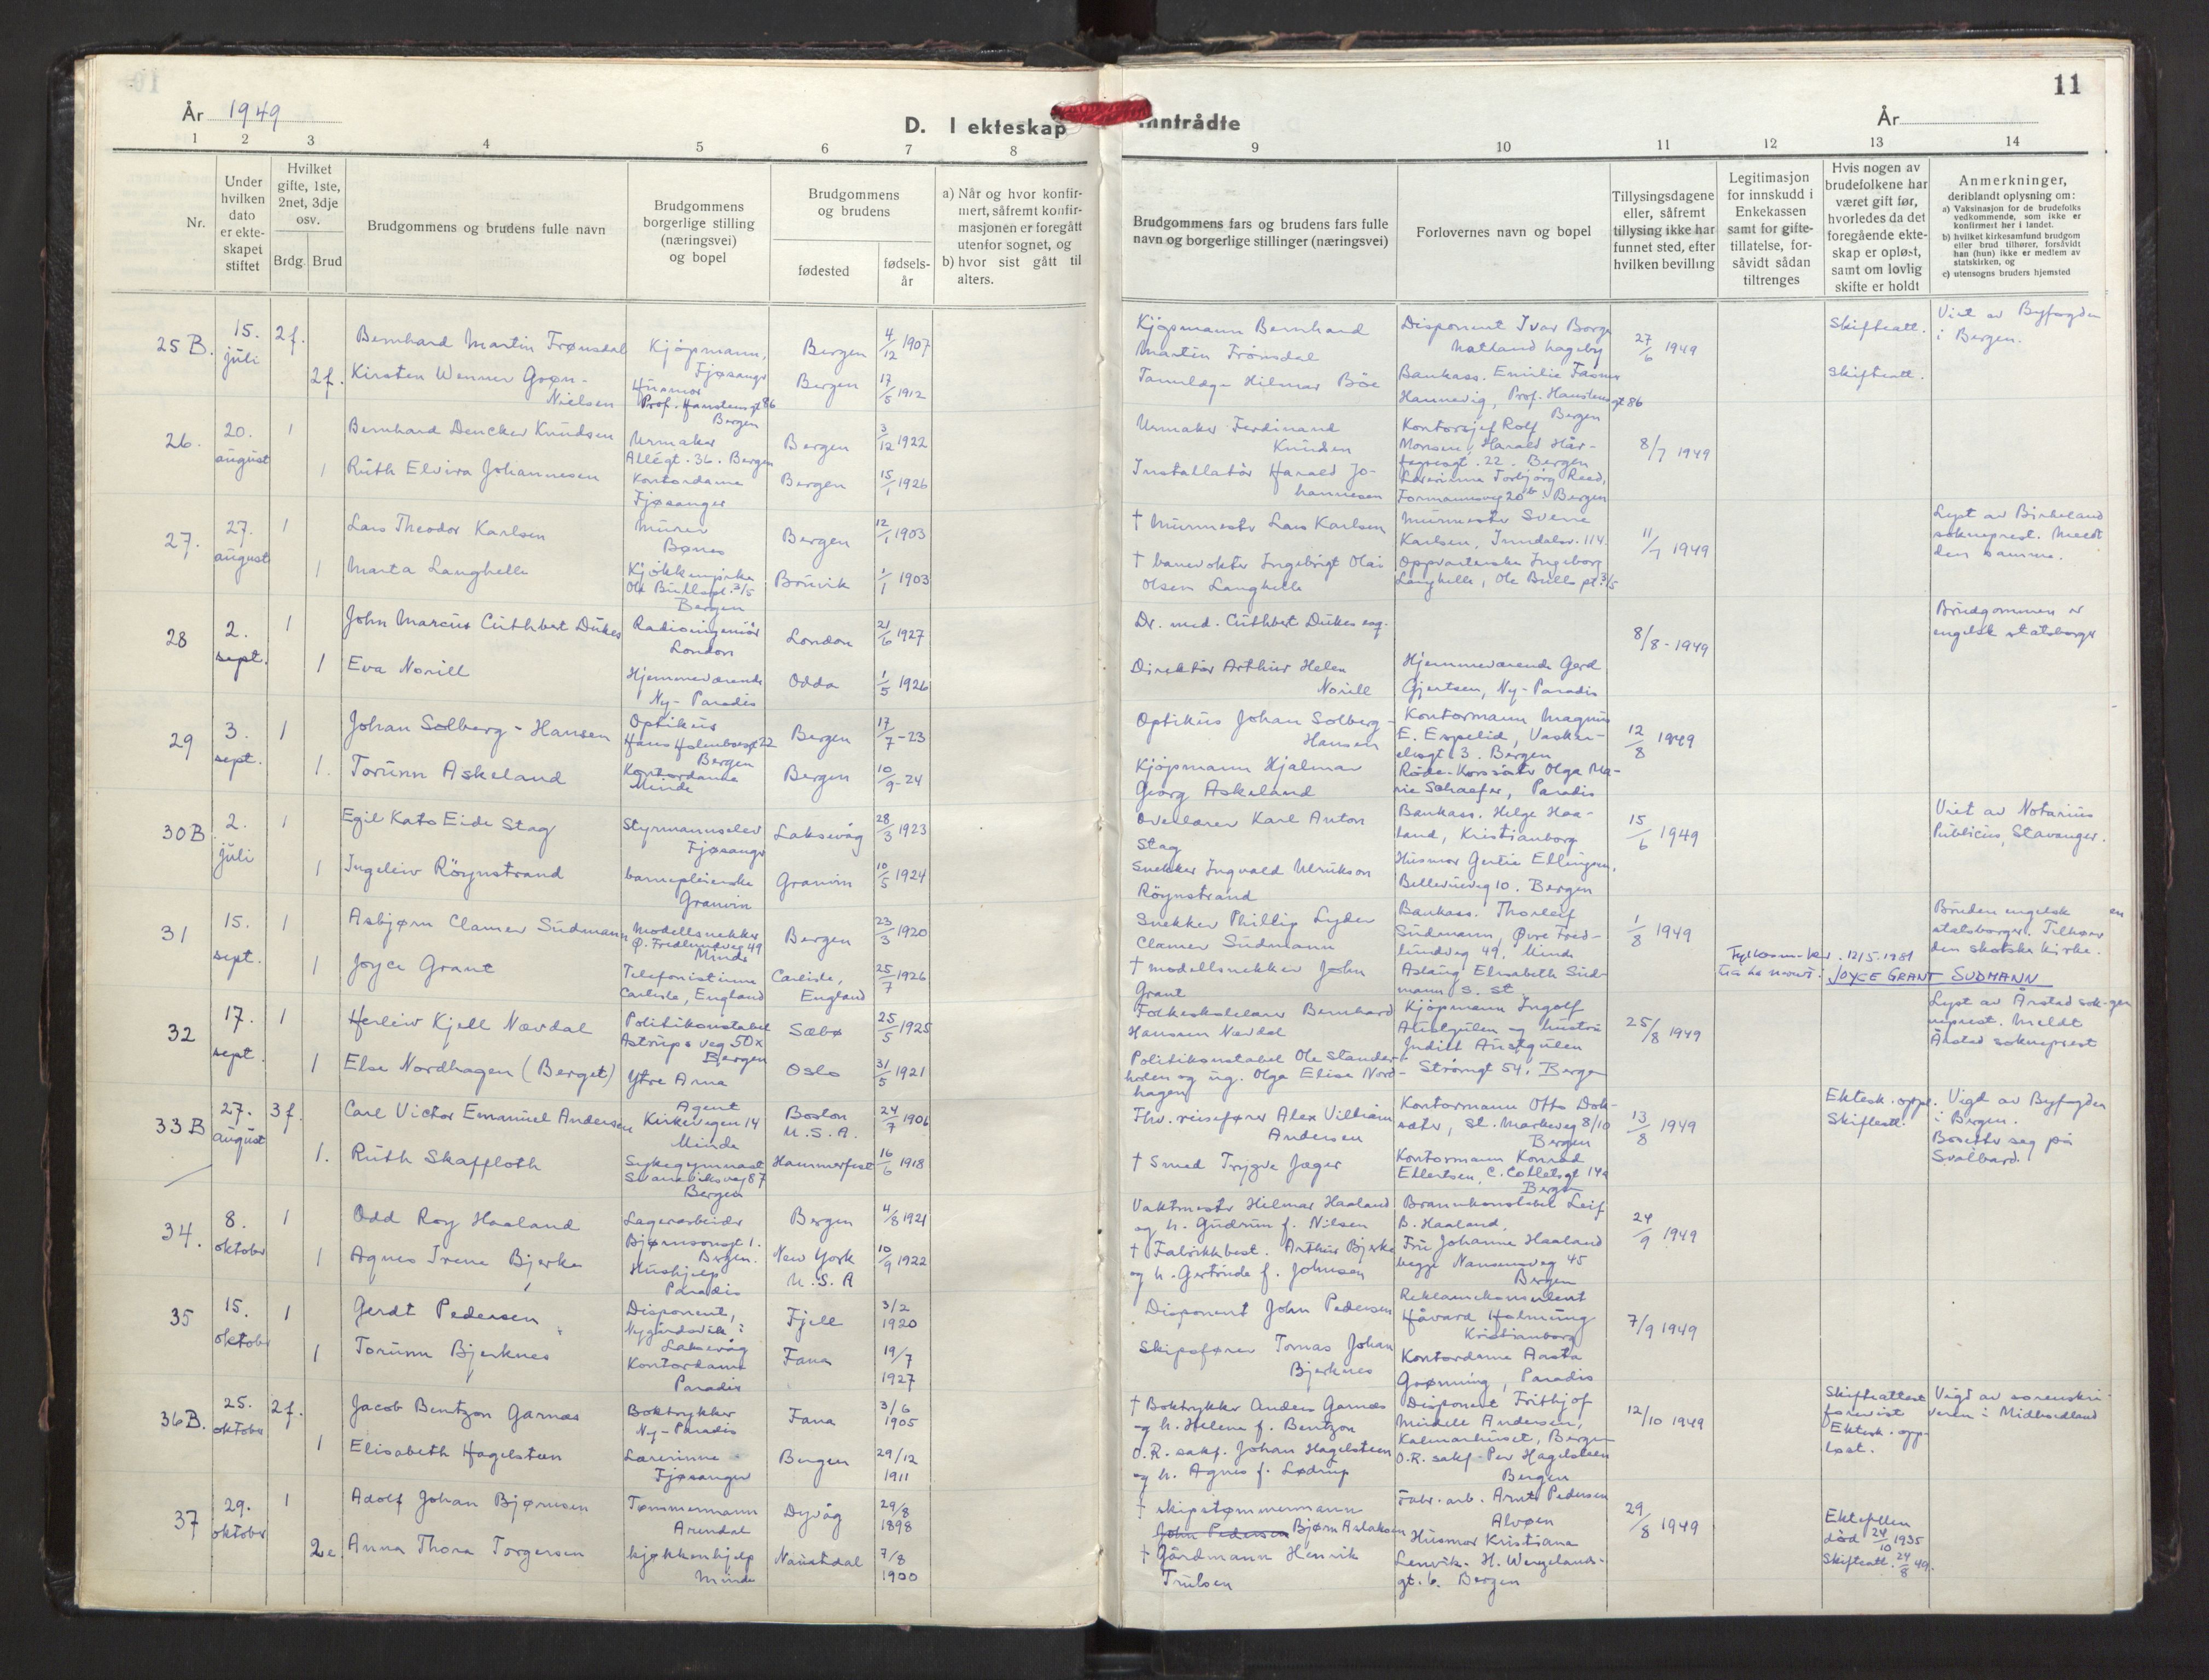 År 1949
D. I ekteskap inntrådte
År
11
1 2 3 4 5 6 7 8 9 10 11 12 13 14
Nr.
Under hvilken dato er ekteskapet stiftet
Hvilket gifte, 1ste, 2net, 3dje osv.
Brdg. Brud
Brudgommens og brudens fulle navn
Brudgommens borgerlige stilling (næringsvei) og bopel
Brudgommens og brudens
fødested
fødselsår
a) Når og hvor konfirmert, såfremt konfirmasjonen er foregått utenfor sognet, og
b) hvor sist gått til alters.
Brudgommens fars og brudens fars fulle navn og borgerlige stillinger (næringsvei)
Forlovernes navn og bopel
Tillysingsdagene eller, såfremt tillysing ikke har funnet sted, efter hvilken bevilling
Legitimasjon for innskudd i Enkekassen samt for giftetillatelse, forsåvidt sådan tiltrenges
Hvis nogen av brudefolkene har været gift før, hvorledes da det foregående ekteskap er opløst, samt om lovlig skifte er holdt
Anmerkninger, deriblandt oplysning om:
a) Vaksinasjon for de brudefolks vedkommende, som ikke er konfirmert her i landet.
b) hvilket kirkesamfund brudgom eller brud tilhører, forsåvidt han (hun) ikke er medlem av statskirken, og
c) utensogns bruders hjemsted
25 B. 15. juli 2f. Bernhard Martin Frønsdal Kjøpmann, Fjøsanger Bergen 4/12 1907
Kjøpmann Bernhard Martin Frønsdal
Disponent Ivar Borge Natland hageby
27/6 1949
Skifteatt.
Viet av Byfogden i Bergen.
2f. Kirsten Wenner Grøn-Nielsen Husmor Prof. Hansteensgt 86 Bergen Bergen 17/5 1912
Tannlæge Hilmar Böe
Bankass. Emilie Hannevig, Prof. Hansteensgt 86 Bergen
Skifteatt.
26. 20. august 1 Bernhard Dencker Knudsen Urmaker Allégt. 36. Bergen Bergen 3/12 1922
Urmaker Ferdinand Knudsen
Kontorsjef Rolf Monsen, Harald Hårfagresgt. 22. Bergen
8/7 1949
1 Ruth Elvira Johannesen Kontordame Fjøsanger Bergen 15/1 1926
Installatör Harald Johannesen
Lærerinne Torbjörg Reed, Formannsveg 20b. Bergen
27. 27. august 1 Lars Theodor Karlsen Murer Bønes Bergen 12/1 1903
† Murmester Lars Karlsen
Murmester Sverre Karlsen, Inndalsv. 114.
11/7 1949
Lyst av Birkeland sokneprest. Meldt den samme.
1 Marta Langhelle Kjökkenpike Ole Bullspl. 3/5 Bergen Bruvik 1/1 1903
† banevokter Ingebrigt Olai Olsen Langhelle
Oppvarterske Ingeborg Langhelle, Ole Bulls pl. 3/5
28 2. sept. 1 John Marcus Cuthbert Dukes Radioingeniör London London 21/6 1927
Dr. med. Cuthbert Dukes esq.
8/8 - 1949
Brudgommen er engelsk statsborger
1 Eva Norill Hjemmeværende Ny-Paradis Odda 1/5 1926
Direktör Arthur Helen Norill
Hjemmeværende Gerd Gjertsen, Ny-Paradis
29 3. sept. 1 Johan Solberg-Hansen Optikus Hans Holmboesgt 22 Bergen Bergen 17/7-23
Optikus Johan Solberg-Hansen
Kontormann Magnus E. Espelid, Vaskerelvsgt 3. Bergen
12/8 1949
1. Torunn Askeland Kontordame Minde Bergen 10/9-24
Kjöpmann Hjalmar Georg Askeland
Røde-Korssöster Olga Marie Schaefer, Paradis
30 B 2. juli 1 Egil Kato Eide Stag Styrmannselev Fjøsanger Laksevåg 28/3 1923
Overlærer Karl Anton Stag
Bankass. Helge Haaland, Kristianborg
15/6 1949
Viet av Notarius Publicus, Stavanger.
1 Ingeleiv Röynstrand barnepleierske Granvin Granvin 10/5 1924
Snekker Ingvald Ulrikson Röynstrand
Husmor Gertie Ellingsen, Bellevueveg 10. Bergen
31 15. sept. 1 Asbjørn Clamer Sudmann Modellsnekker Ø. Fredlundveg 49 Minde Bergen 23/3 1920
Snekker Phillip Lyder Clamer Sudmann
Bankass. Thorleif Sudmann, Øvre Fredlundveg 49, Minde
1/8 1949
Bruden engelsk statsborger. Tilhører den skotske kirke.
1 Joyce Grant Telefonistinne Carlisle, England Carlisle, England 25/7 1926
† modellsnekker John Grant
Aslaug Elisabeth Sudmann s. st.
12/5.1981
JOYCE GRANT SUDMANN
32 17. sept. 1 Herleiv Kjell Nævdal Politikonstabel Astrups veg 50x Bergen Sæbø 25/5 1925
Folkeskolelærer Bernhard Hansen Nævdal
Kjöpmann Ingolf Austgulen og hustru Judith Austgulen
25/8 1949
Lyst av Årstad sokneprest. Meldt Årstad sokneprest
1 Else Nordhagen (Berget) Ytre Arna Oslo 31/5 1921
Politikonstabel Ole Standerholen og ug. Olga Elise Nordhagen
Strömgt 54, Bergen
33 B 27. august 3f. Carl Victor Emanuel Andersen Agent Kirkevegen 14 Minde Boston U.S.A. 24/7 1906
Fhv. reisefører Alex Villiam Andersen
Kontormann Otto Dokseter, St. Markeveg 8/10 Bergen
13/8 1949
Ektesk. oppl. Skifteatt.
Vigd av Byfogden i Bergen. Bosetter seg på Svalbard.
1. Ruth Skaffloth Sykegymnast Svaneviksveg 87 Bergen Hammerfest 16/6 1918
† Smed Trygve Jæger
Kontormann Konrad Ellertsen, C. Colletsgt 14a Bergen
34. 8. oktober 1 Odd Roy Haaland Lagerarbeider Bjørnsonsgt 1. Bergen. Bergen 4/8 1921
Vaktmester Hilmar Haaland og h. Gudrun f. Nilsen
Brannkonstabel Leif B. Haaland,
24/9 1949
1 Agnes Irene Bjerke Hushjelp Paradis New York U.S.A 10/9 1922
† Fabrikkbest. Arthur Bjerke og h. Gertrude f. Johnsen
Fru Johanne Haaland begge Nansensveg 45 Bergen
35 15. oktober 1 Gerdt Pedersen Disponent, Nygårdsvik i Laksevåg Fjell 3/2 1920
Disponent John Pedersen
Reklamekonsulent Håvard Holmung Kristianborg
7/9 1949
1 Torunn Bjerknes Kontordame Paradis Fana 19/7 1927
Skipsfører Tomas Johan Bjerknes
Kontordame Aasta Grønning, Paradis
36 B. 25. oktober 2f. Jacob Bentzon Garnæs Boktrykker Ny-Paradis Fana 3/6 1905
† Boktrykker Anders Garnæs og h. Helene f. Bentzon
Disponent Frithjof Mikell Andersen, Kalmarhuset, Bergen
12/10 1949
Skifteattest forevist Ektesk. oppløst.
Vigd av sorenskriveren i Midhordland
1 Elisabeth Hagelsteen Lærerinne Fjøsanger Bergen 29/12 1911
O.R. sakf. Johan Hagelsteen og h. Agnes f. Lødrup
O.R. sakf. Per Hagelsteen Bergen
37 29. oktober 1 Adolf Johan Bjørnsen Tømmermann Arendal Dyvåg 29/8 1898
† skipstømmermann John Pedersen Bjørn Aslaksen
Fabr. arb. Arnt Pedersen Alvøen
29/8 1949
Ektefellen död 24/10 1935 Skifteatt. 24/8 49.
2e. Anna Thora Torgersen kjøkkenhjelp Minde Naustdal 7/8 1900
† Gårdmann Henrik Trulsen
Husmor Kristiane Lenvik. H. Wergelandsgt. 6. Bergen